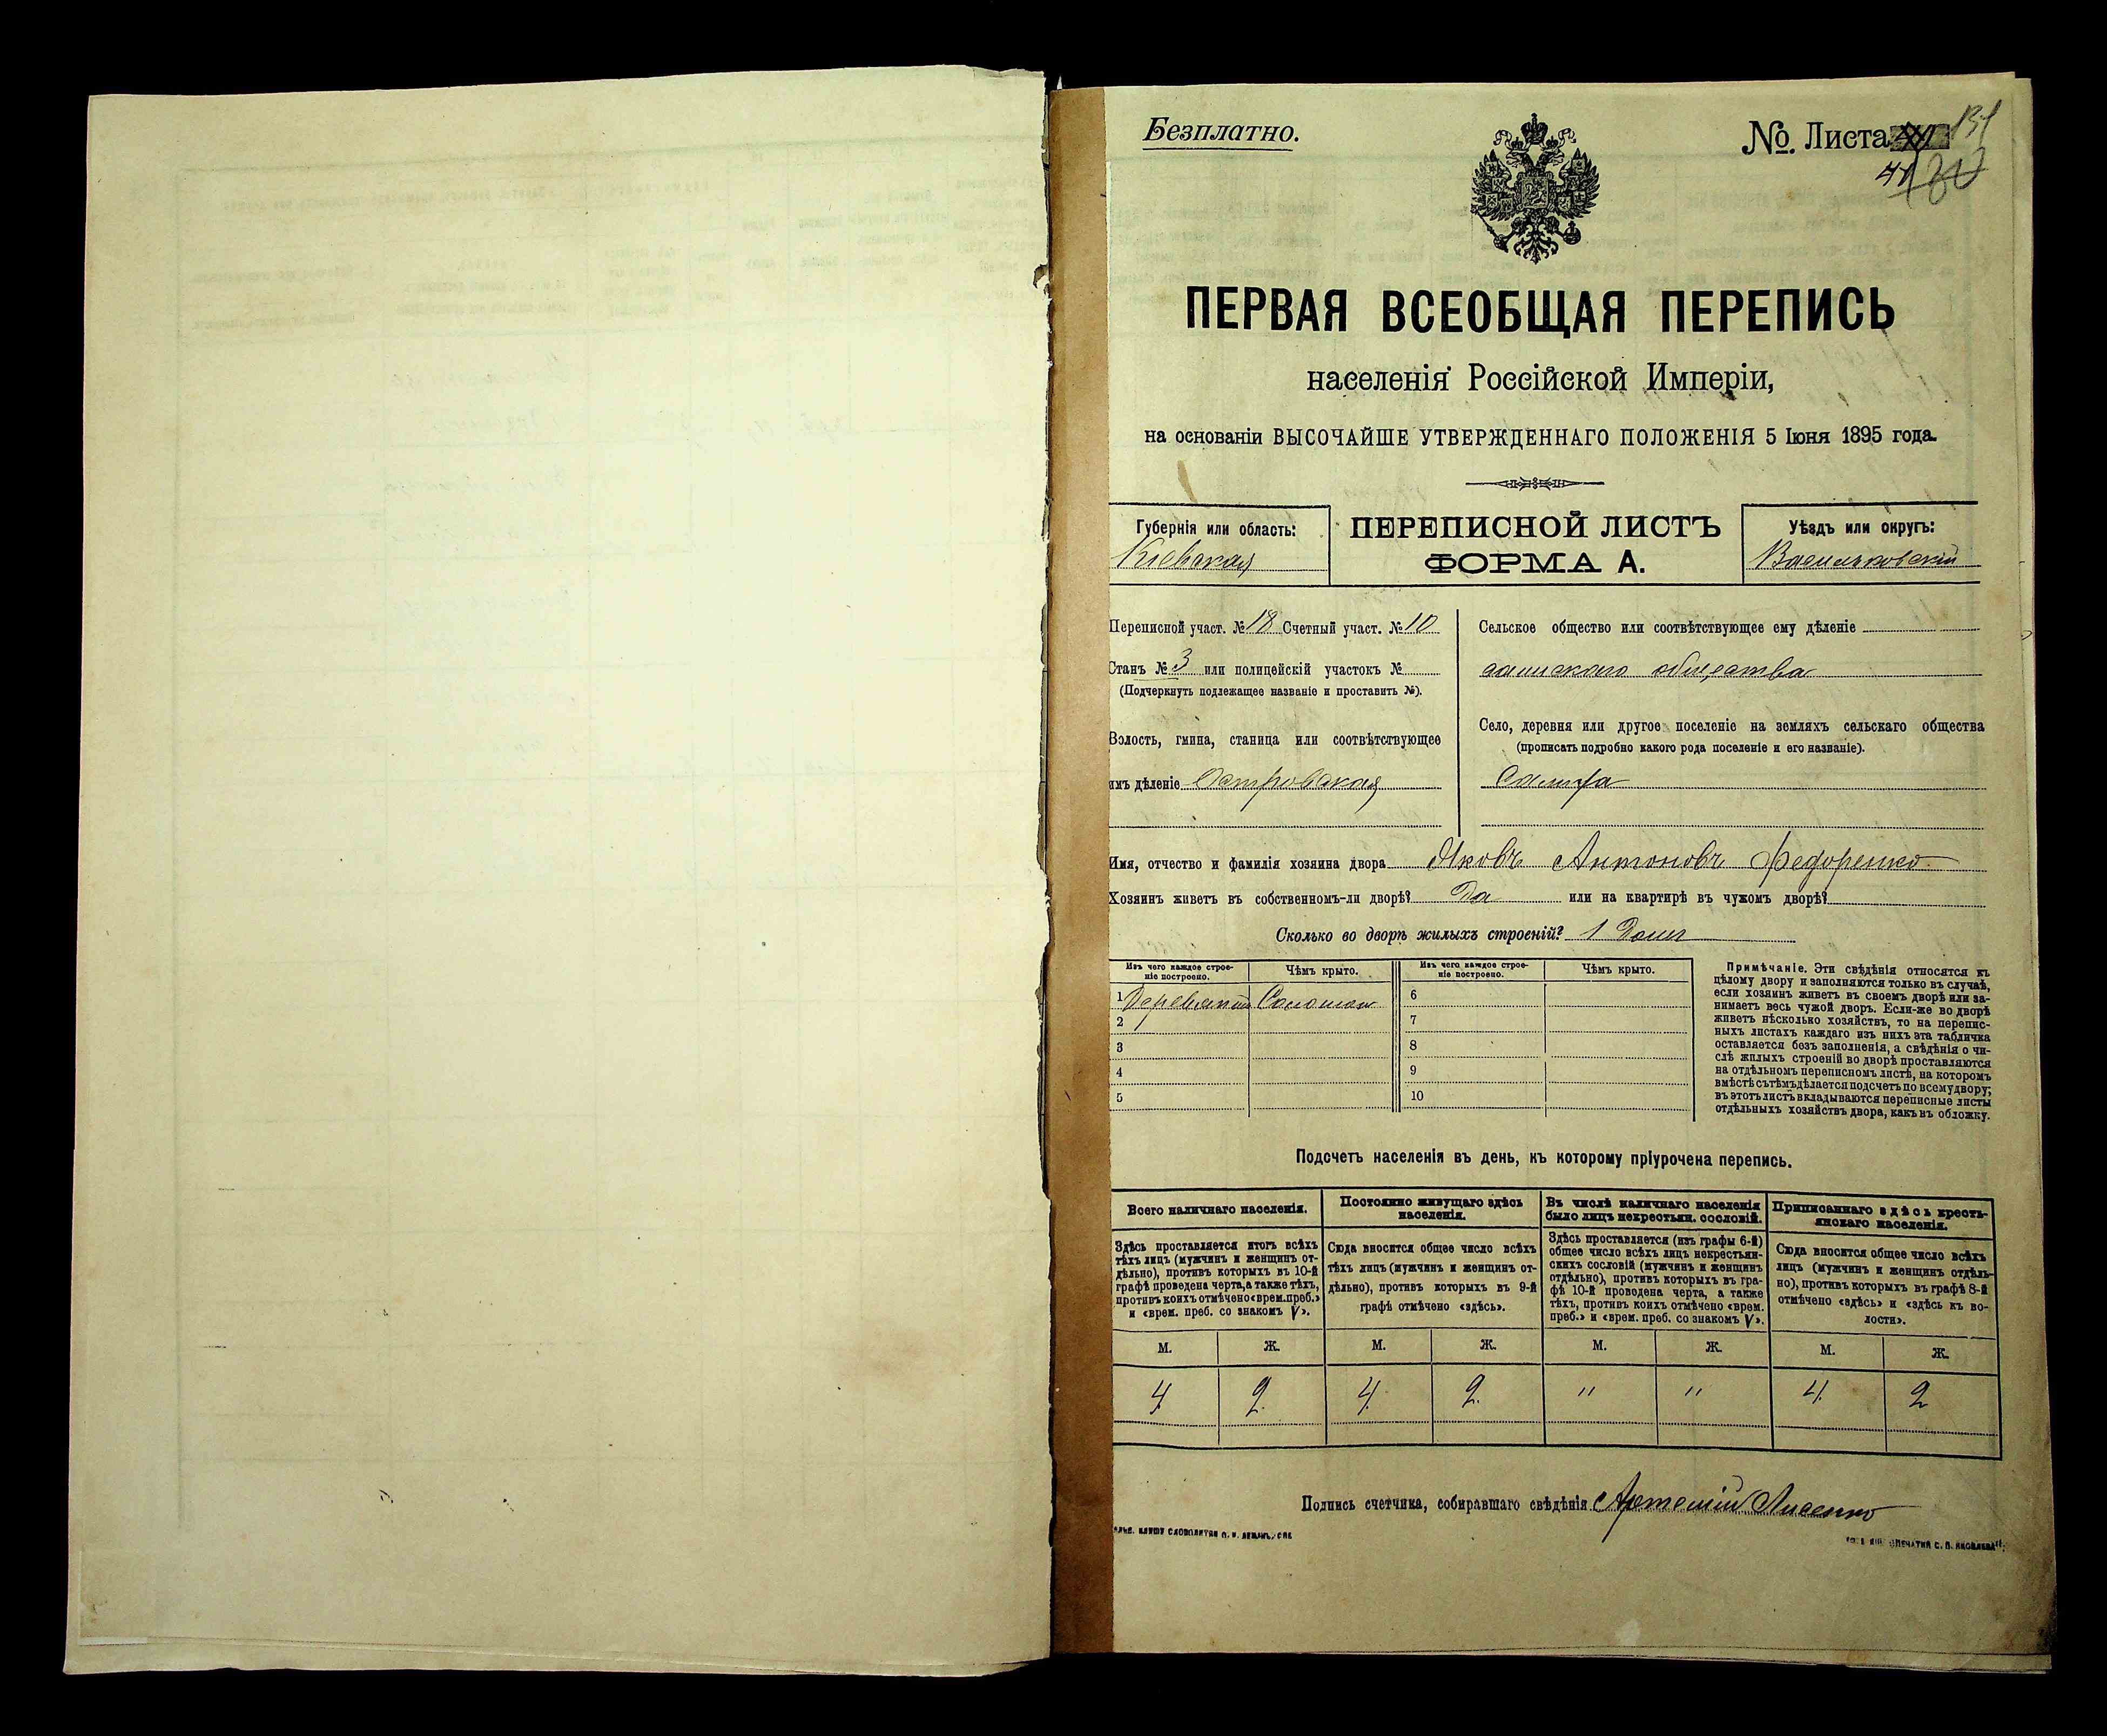 Безплатно.
№. Листа 131
41
ПЕРВАЯ ВСЕОБЩАЯ ПЕРЕПИСЬ
населенія Россійской Имперіи,
на основаніи ВЫСОЧАЙШЕ УТВЕРЖДЕННАГО ПОЛОЖЕНІЯ 5 Іюня 1895 года.
Губернія или область:
Кіевская
ПЕРЕПИСНОЙ ЛИСТЪ
ФОРМА А.
Уѣздъ или округъ:
Васильковскій
Переписной участ. № 18 Счетный участ. № 10
Станъ № 3 или полицейскій участокъ №
(Подчеркнуть подлежащее названіе и проставить №).
Волость, гмина, станица или соотвѣтствующее
имъ дѣленіе Островская
Сельское общество или соотвѣтствующее ему дѣленіе
общества
Село, деревня или другое поселеніе на земляхъ сельскаго общества
(прописать подробно какого рода поселеніе и его названіе).
Имя, отчество и фамилія хозяина двора Яковъ Антоновъ Федоренко
Хозяинъ живетъ въ собственномъ-ли дворѣ? Да или на квартирѣ въ чужомъ дворѣ?
Сколько во дворѣ жилыхъ строеній? 1 Домъ
Изъ чего каждое строе-
ніе построено.
Чѣмъ крыто.
Изъ чего каждое строе-
ніе построено.
Чѣмъ крыто.
1 Соломою 6
2 7
3 8
4 9
5 10
Примѣчаніе. Эти свѣдѣнія относятся къ
цѣлому двору и заполняются только въ случаѣ,
если хозяинъ живетъ въ своемъ дворѣ или за-
нимаетъ весь чужой дворъ. Если-же во дворѣ
живетъ нѣсколько хозяйствъ, то на перепис-
ныхъ листахъ каждаго изъ нихъ эта табличка
оставляется безъ заполненія, а свѣдѣнія о чи-
слѣ жилыхъ строеній во дворѣ проставляются
на отдѣльномъ переписномъ листѣ, на которомъ
вмѣстѣ съ тѣмъ дѣлается подсчетъ по всему двору;
въ этотъ листъ вкладываются переписные листы
отдѣльныхъ хозяйствъ двора, какъ въ обложку.
Подсчетъ населенія въ день, къ которому пріурочена перепись.
Всего наличнаго населенія.
Здѣсь проставляется итогъ всѣхъ
тѣхъ лицъ (мужчинъ и женщинъ от-
дѣльно), противъ которыхъ въ 10-й
графѣ проведена черта, а также тѣхъ,
противъ коихъ отмѣчено «врем. преб.»
и «врем. преб. со знакомъ V».
Постоянно живущаго здѣсь
населенія.
Сюда вносится общее число всѣхъ
тѣхъ лицъ (мужчинъ и женщинъ от-
дѣльно), противъ которыхъ въ 9-й
графѣ отмѣчено «здѣсь».
Въ числѣ наличнаго населенія
было лицъ некрестьян. сословій.
Здѣсь проставляется (изъ графы 6-й)
общее число всѣхъ лицъ некрестьян-
скихъ сословій (мужчинъ и женщинъ
отдѣльно), противъ которыхъ въ гра-
фѣ 10-й проведена черта, а также
тѣхъ, противъ коихъ отмѣчено «врем.
преб.» и «врем. преб. со знакомъ V».
Приписаннаго здѣсь кресть-
янскаго населенія.
Сюда вносится общее число всѣхъ
лицъ (мужчинъ и женщинъ отдѣль-
но), противъ которыхъ въ графѣ 8-й
отмѣчено «здѣсь» и «здѣсь къ во-
лости».
М. Ж. М. Ж. М. Ж. М. Ж.
4. 2. 4. 2. " " 4. 2
Подпись счетчика, собиравшаго свѣдѣнія Артемій Лисенко